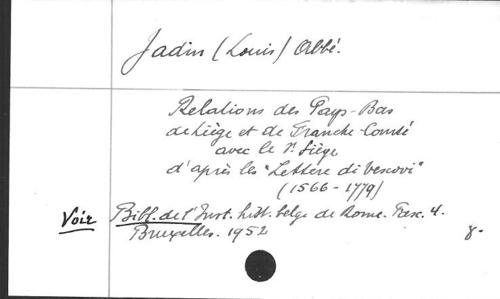 Jadin (Louis) Abbé.
Relations des Pays-Bas
de Liège et de Franche-Comté
avec le St Siège
d'après les "Lettere di Vescovi"
(1566-1779)
Voir Bibl. de l'Inst. hist. belge de Rome. Fasc. 4.
Bruxelles. 1952 8.